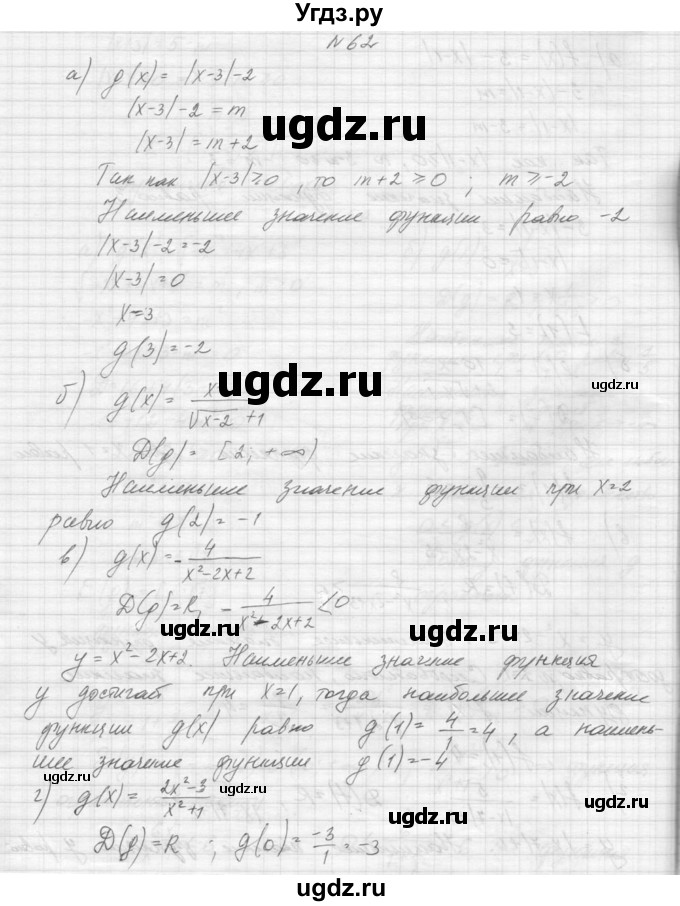 Угдз.ру
N 62
а) g(x) = |x-3|-2
|x-3|-2=m
|x-3|=m+2
Так как |x-3|⩾0, то m+2⩾0; m⩾-2
Наименьшее значение функции равно -2
|x-3|-2=-2
|x-3|=0
x=3
g(3)=-2
б) g(x)= x- / √(x-2) +1
D(g)= [2; +∞)
Наименьшее значение функции при x=2
равно g(2)=-1
в) g(x)= -4/(x²-2x+2)
D(g)=R, -4/(x²-2x+2) <0
y=x²-2x+2. Наименьшее значение функция
y достигает при x=1, тогда наибольшее значение
функции g(x) равно g(1)=4/1=4, а наимень-
шее значение функции g(1)=-4
г) g(x)= (2x²-3)/(x²+1)
D(g)=R; g(0)=-3/1=-3
ugdz.ru
ugdz.ru
ugdz.ru
ugdz.ru
ugdz.ru
ugdz.ru
ugdz.ru
ugdz.ru
ugdz.ru
ugdz.ru
ugdz.ru
ugdz.ru